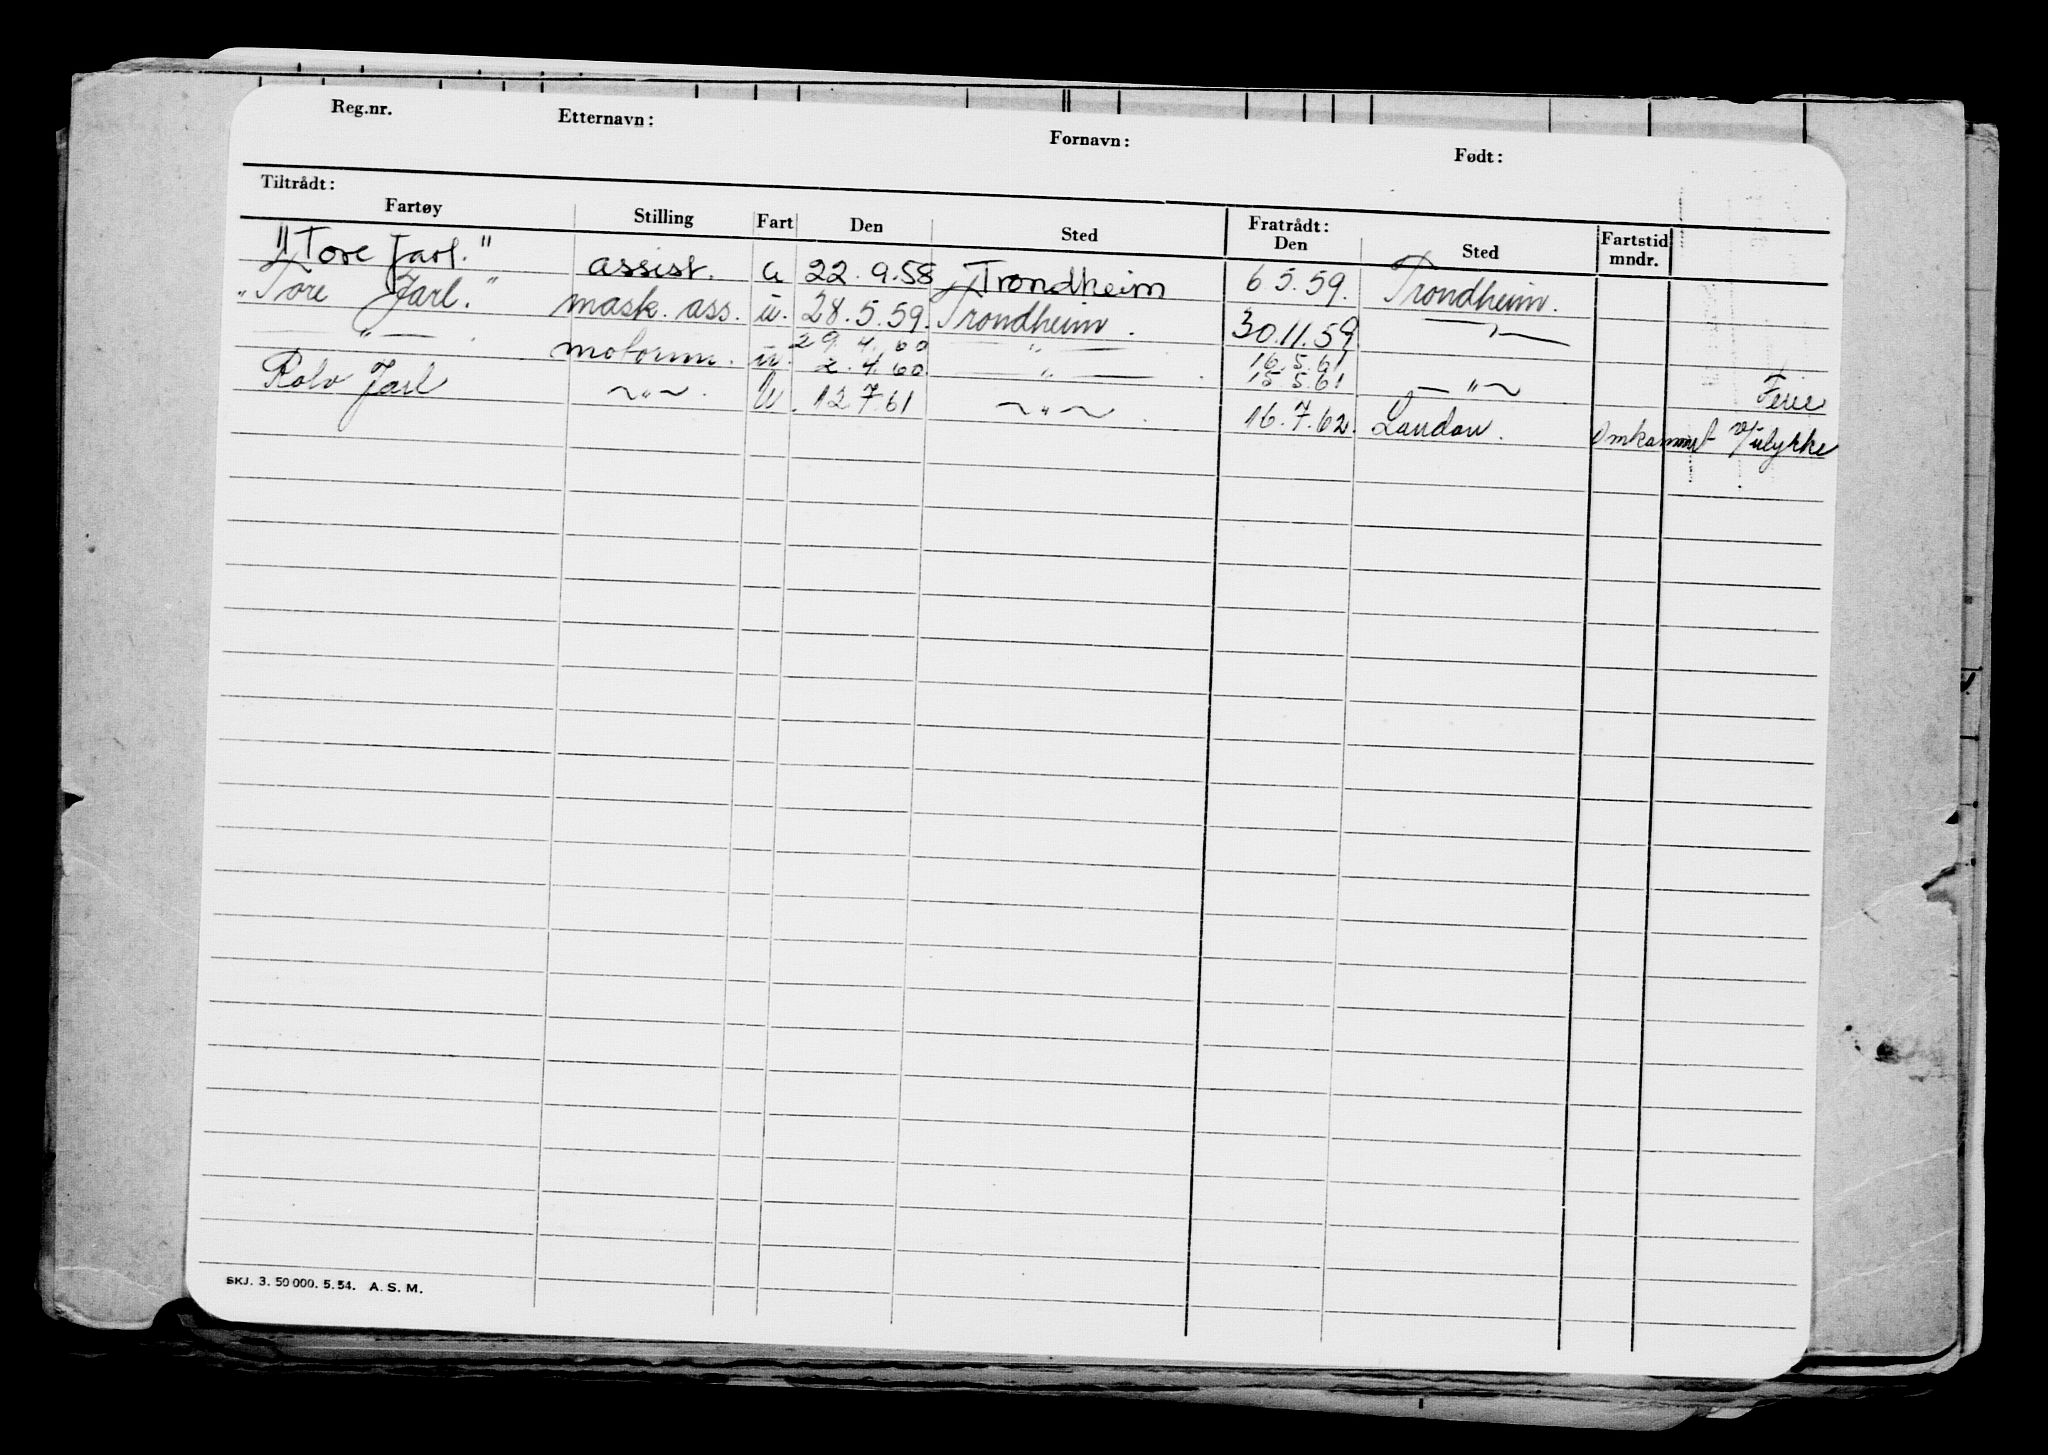 Reg.nr. Etternavn: Fornavn: Født:
Tiltrådt: Fratrådt:
Fartøy Stilling Fart Den Sted Den Sted Fartstid mndr.
"Tore Jarl." assist. u 22.9.58 Trondheim 6 5.59. Trondheim.
"Tore Jarl." mask. ass. u. 28.5.59. Trondheim. 30.11.59 — " —
— " — . motorm. u. 29.4.60 — " — 16.5.61
2.4.60 — " — . 15 5.61 — " — Ferie
Rolv Jarl — " — . U. 12 7.61 — " — . 16.7.62. London. Omkommet v/ulykke
SKJ. 3. 50 000. 5. 54. A. S. M.